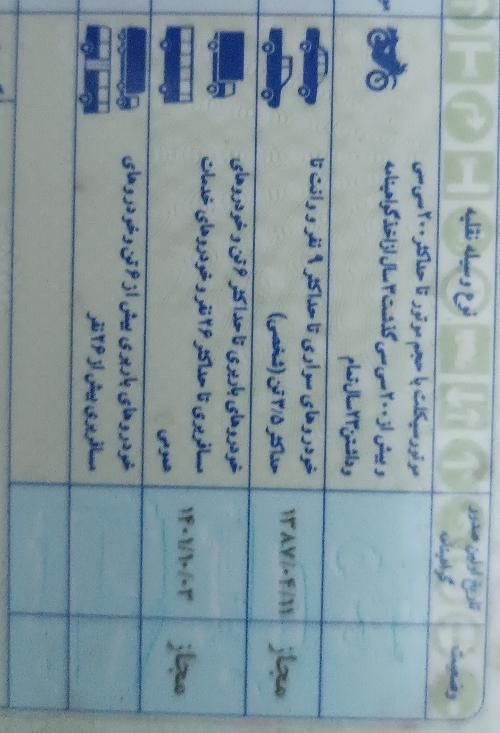 نوع وسیله نقلیه
تاریخ اولین صدور
گواهینامه
وضعیت
موتورسیکلت با حجم موتور تا حداکثر ۲۰۰ سی سی
و بیش از ۲۰۰ سی سی گذشت ۳ سال از اخذ گواهینامه
و داشتن ۲۳ سال تمام
خودروهای سواری تا حداکثر ۹ نفر و وانت تا
حداکثر ۳/۵ تن (شخصی)
۱۳۸۷/۰۴/۱۱
مجاز
خودروهای باربری تا حداکثر ۶ تن و خودروهای
مسافربری تا حداکثر ۲۶ نفر و خودروهای خدمات
عمومی
۱۴۰۱/۱۰/۰۳
مجاز
خودروهای باربری بیش از ۶ تن و خودروهای
مسافربری بیش از ۲۶ نفر